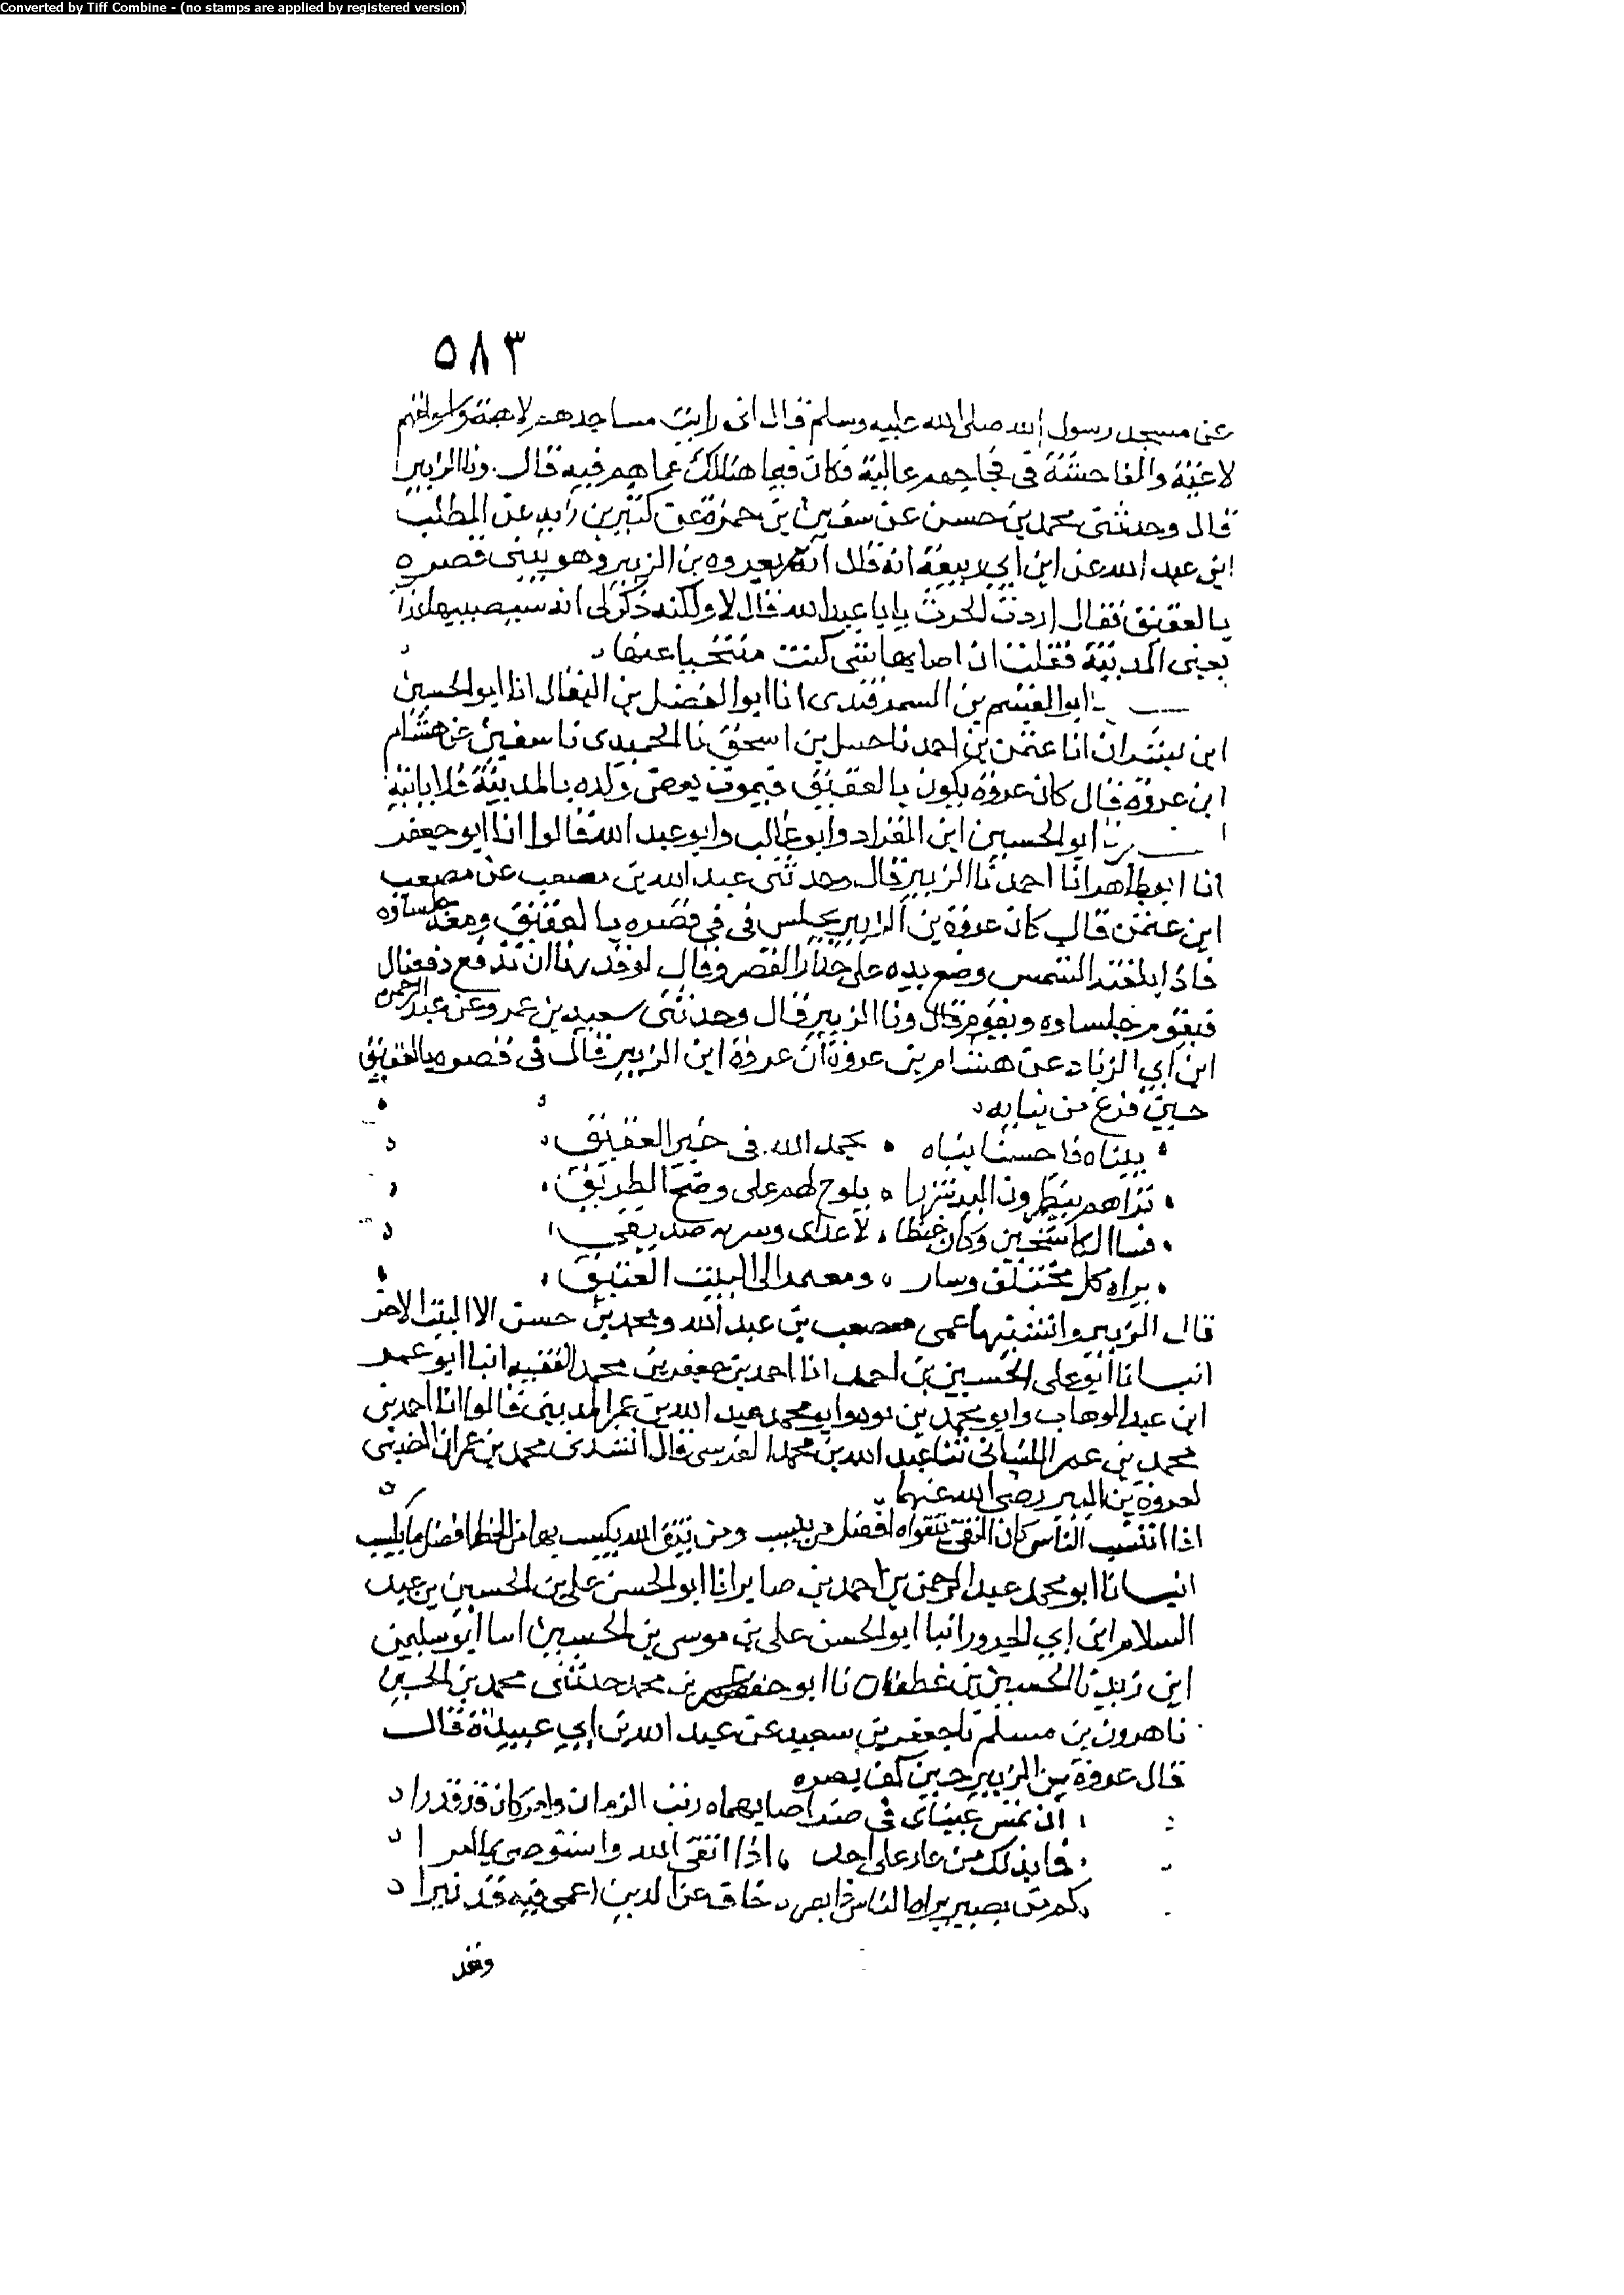 Converted by Tiff Combine - (no stamps are applied by registered version)
٥٨٣
عن مسجد رسول الله صلى الله عليه وسلم قال انى رايت مساجدهم لاهية واسواقهم
لاغية والفاحشة في فجاجهم عالية فكان فيما هنالك عما هم فيه قال ونا الزبير
قال وحدثني محمد بن حسن عن سفين بن حمزة عن كثير بن زيد عن المطلب
ابن عبد الله عن ابن ابي ربيعة انه قال انه مر بعروه بن الزبير وهو يبنى قصره
بالعقيق فقال اردت الحرث يا با عبد الله قال لا ولكنه ذكر لى انه سيصيبها عذاب
يعنى المدينة فقلت ان اصابها شى كنت منتحيا عنها
ابو القسم بن السمرقندى انا ابو الفضل بن البقال انا ابو الحسين
ابن بشران انا عثمن بن احمد نا حنبل بن اسحق نا الحميدى نا سفين عن هشام
ابن عروة قال كان عروة يكون بالعقيق فيموت بعض ولده بالمدينة فلا ياتيه
ابو الحسين ابن الفراء وابو غالب وابو عبد الله قالوا انا ابو جعفر
انا ابو طاهر انا احمد نا الزبير قال وحدثنى عبد الله بن مصعب عن مصعب
ابن عثمن قال كان عروة بن الزبير يجلس في في قصره بالعقيق ومعه جلساؤه
فاذا بلغته الشمس وضع يده على جدار القصر وقال لو قدرنا ان ندفع دفعنا قال
فيقوم جلساوه ويقوم قال ونا الزبير قال وحدثنى سعيد بن عمرو عن عبد الرحمن
ابن ابي الزناد عن هشام بن عروة ان عروة ابن الزبير قال في قصره بالعقيق
حين فرغ من بنايه
بنيناه فاحسنا بناه بحمد الله في خير العقيق
تراهم ينظرون اليه شزرا يلوح لهم على وضح الطريق
فساا الكاشحين وكان غيظا لاعداى وسر به صديقي
يراه كل مختلف وسار ومعتمد الى البيت العتيق
قال الزبير وانشدنيها عمى مصعب بن عبد الله ومحمد بن حسن الا البيت الاخر
انبانا ابو على الحسين بن احمد انا احمد بن جعفر بن محمد الفقيه انبا ابو عمر
ابن عبد الوهاب وابو محمد بن وابو محمد عبد الله بن عمر المدينى قالوا انا احمد بن
محمد بن عمر اللنبانى ثنا عبد الله بن محمد القرسى قال انشدنى محمد بن عمران الضبى
لعروة بن الزبير رضى الله عنهما
اذا انتسب الناس كان التقى بتقواه افضل من ينتسب ومن يتق الله يكسب بها من الحظ افضل ما يكتسب
انبانا ابو محمد عبد الرحمن بن احمد بن صابر انا ابو الحسن على بن الحسين بن عبد
السلام ابن ابي الحزور انبا ابو الحسن على بن موسى بن الحسين انا ابو سليمن
ابن زبر نا الحسين بن غطفان نا ابو حفص بن محمد حدثنى محمد بن الحسين
نا هرون بن مسلم نا جعفر بن سعيد عن عبد الله بن ابي عبيدة قال
قال عروة بن الزبير حين كف بصره
ان تمس عيناى في ضر اصابهما ريب الزمان وامر كان قد قدرا
فما بذلك من عار على احد اذا اتقى الله واستوصى بما امرا
كم من بصير يراه الناس ذا بصر خاف عن الدين اعمى فيه قد نبرا
وقد